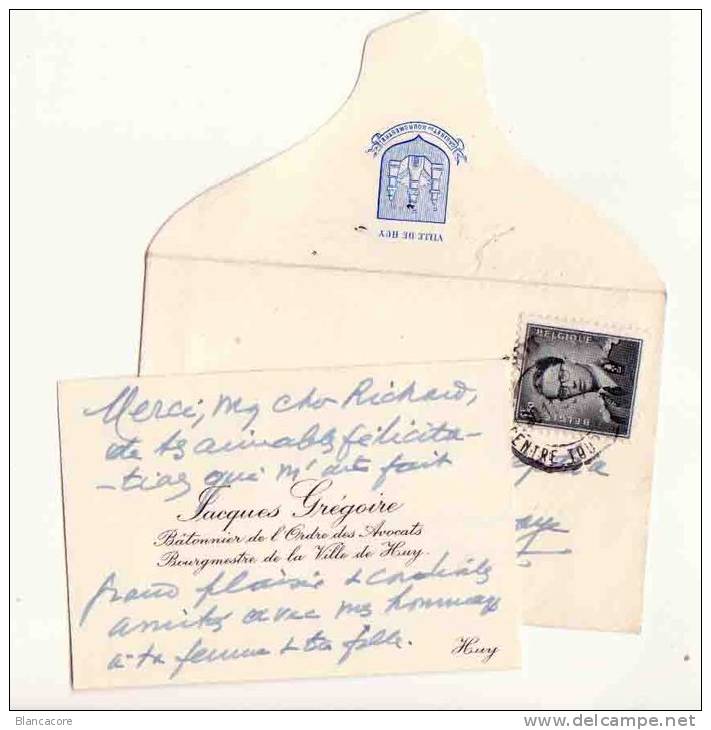 CABINET DU BOURGMESTRE
VILLE DE HUY
BELGIQUE
BELGIË
CENTRE TOU
Merci, mon cher Richard,
de tes aimables félicita-
-tions qui m'ont fait
Jacques Grégoire
Bâtonnier de l'Ordre des Avocats
Bourgmestre de la Ville de Huy.
grand plaisir & cordiales
amitiés avec mes hommages
à ta femme & ta fille.
Huy
Blancacore
delcampe.net